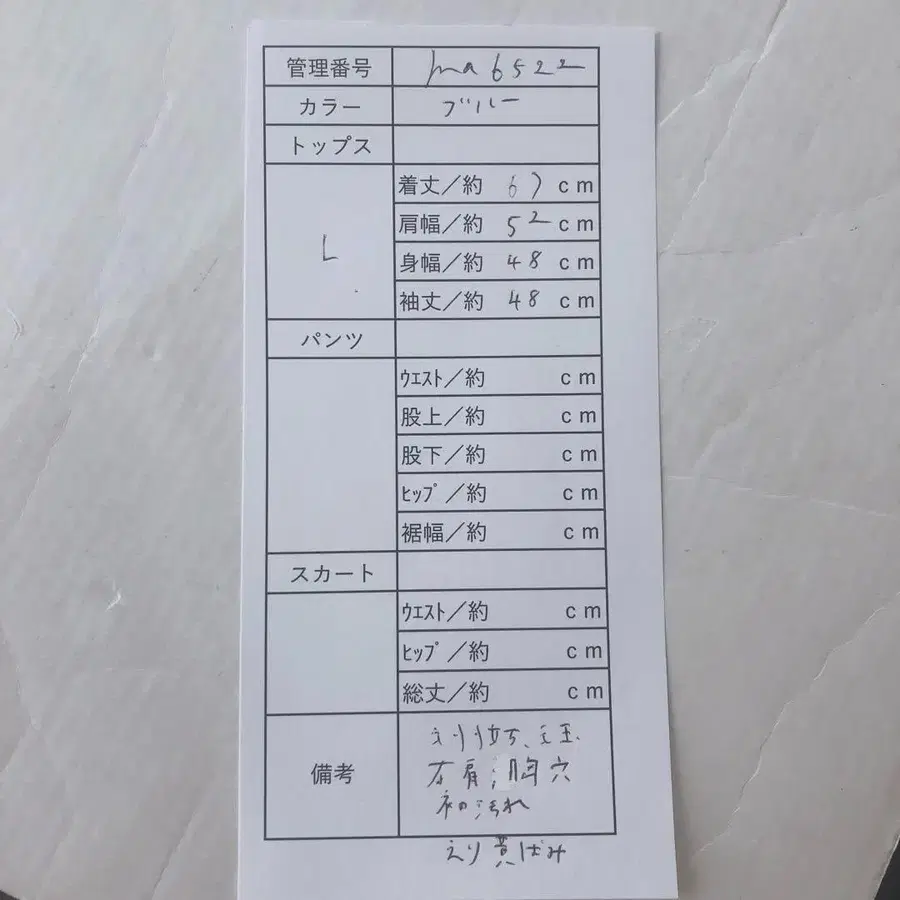 管理番号 ma6522
カラー ブルー
トップス
L
着丈/約 67 cm
肩幅/約 52 cm
身幅/約 48 cm
袖丈/約 48 cm
パンツ
ｳｴｽﾄ/約 cm
股上/約 cm
股下/約 cm
ﾋｯﾌﾟ/約 cm
裾幅/約 cm
スカート
ｳｴｽﾄ/約 cm
ﾋｯﾌﾟ/約 cm
総丈/約 cm
備考
右肩 胸穴
汚れ
えり黄ばみ